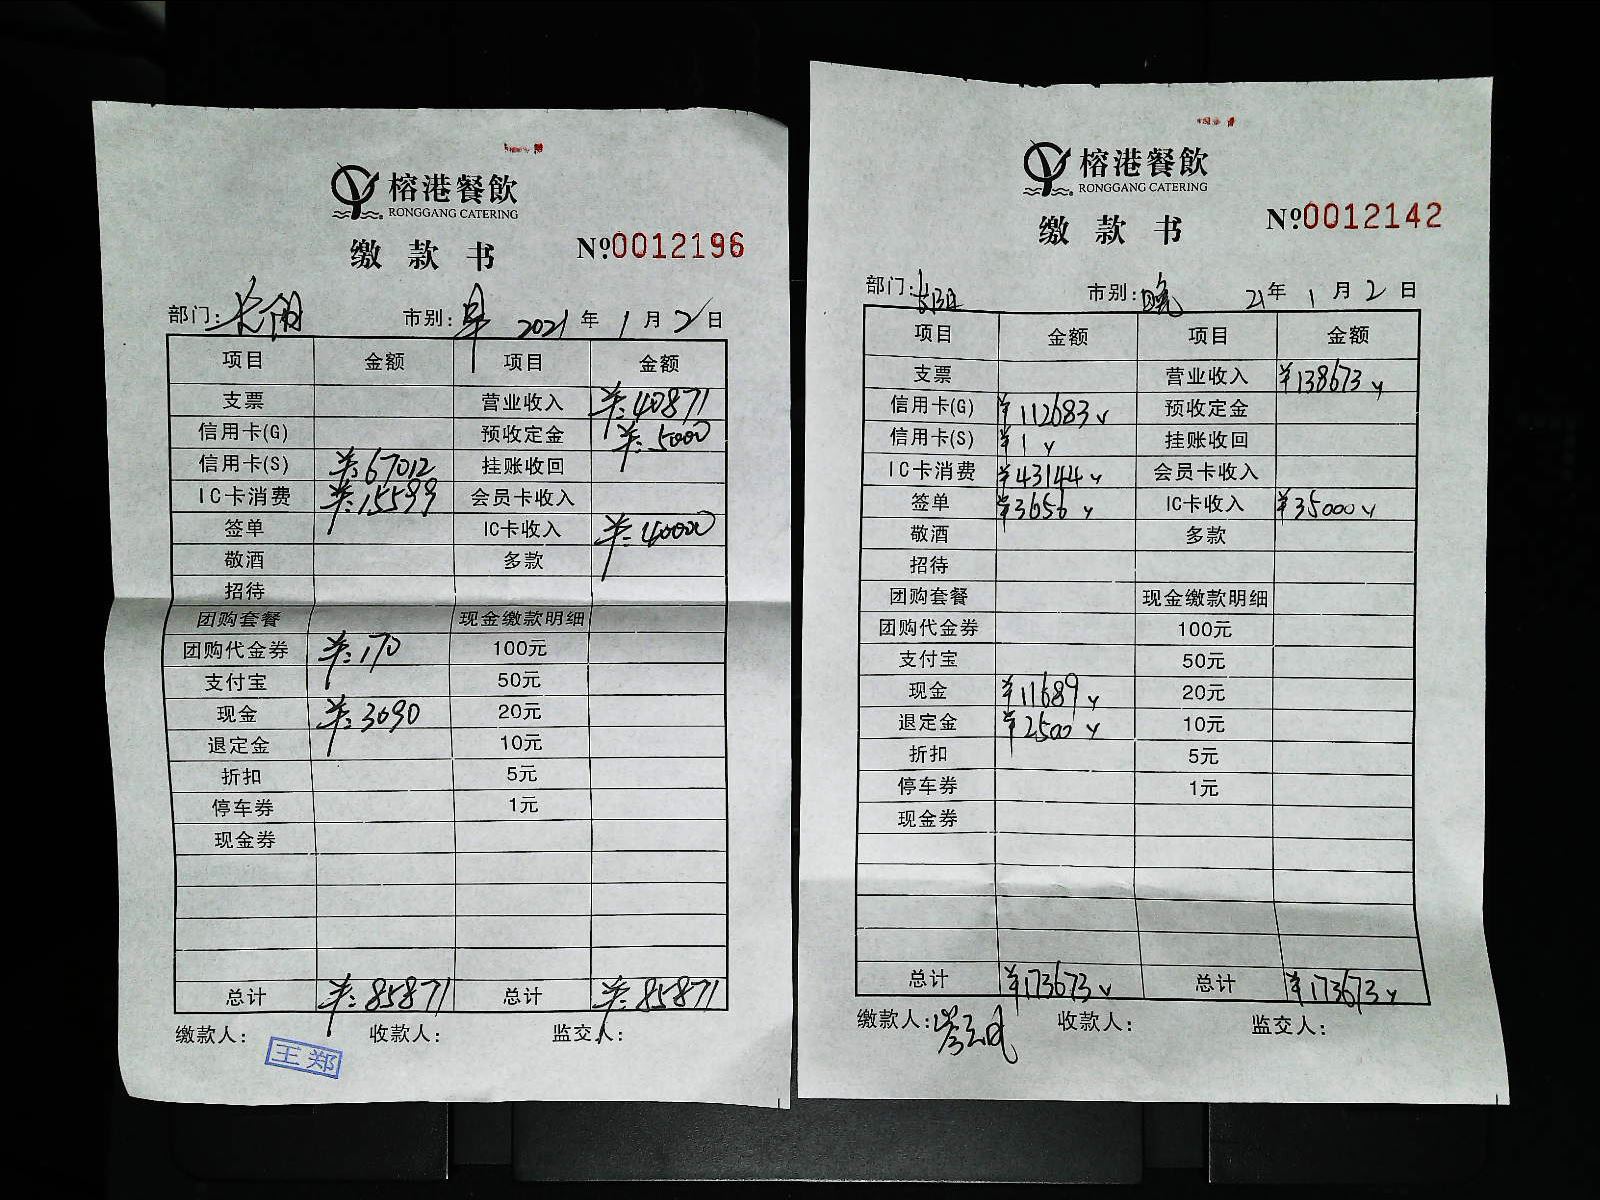 榕港餐飲
RONGGANG CATERING
缴款书
№.0012196
部门: 长阳 市别: 早 2021年1月2日
项目 金额 项目 金额
支票 营业收入 ¥:40871
信用卡(G) 预收定金 ¥:5000
信用卡(S) ¥:67012 挂账收回
IC卡消费 ¥:15599 会员卡收入
签单 IC卡收入 ¥:40000
敬酒 多款
招待
团购套餐 现金缴款明细
团购代金券 ¥:170 100元
支付宝 50元
现金 ¥:3090 20元
退定金 10元
折扣 5元
停车券 1元
现金券
总计 ¥:85871 总计 ¥:85871
缴款人: 收款人: 监交人:
王郑
榕港餐飲
RONGGANG CATERING
缴款书
№.0012142
部门: 长阳 市别: 晚 21年1月2日
项目 金额 项目 金额
支票 营业收入 ¥138673
信用卡(G) ¥112683 预收定金
信用卡(S) ¥1 挂账收回
IC卡消费 ¥43144 会员卡收入
签单 ¥3656 IC卡收入 ¥35000
敬酒 多款
招待
团购套餐 现金缴款明细
团购代金券 100元
支付宝 50元
现金 ¥11689 20元
退定金 ¥2500 10元
折扣 5元
停车券 1元
现金券
总计 ¥173673 总计 ¥173673
缴款人: 收款人: 监交人: